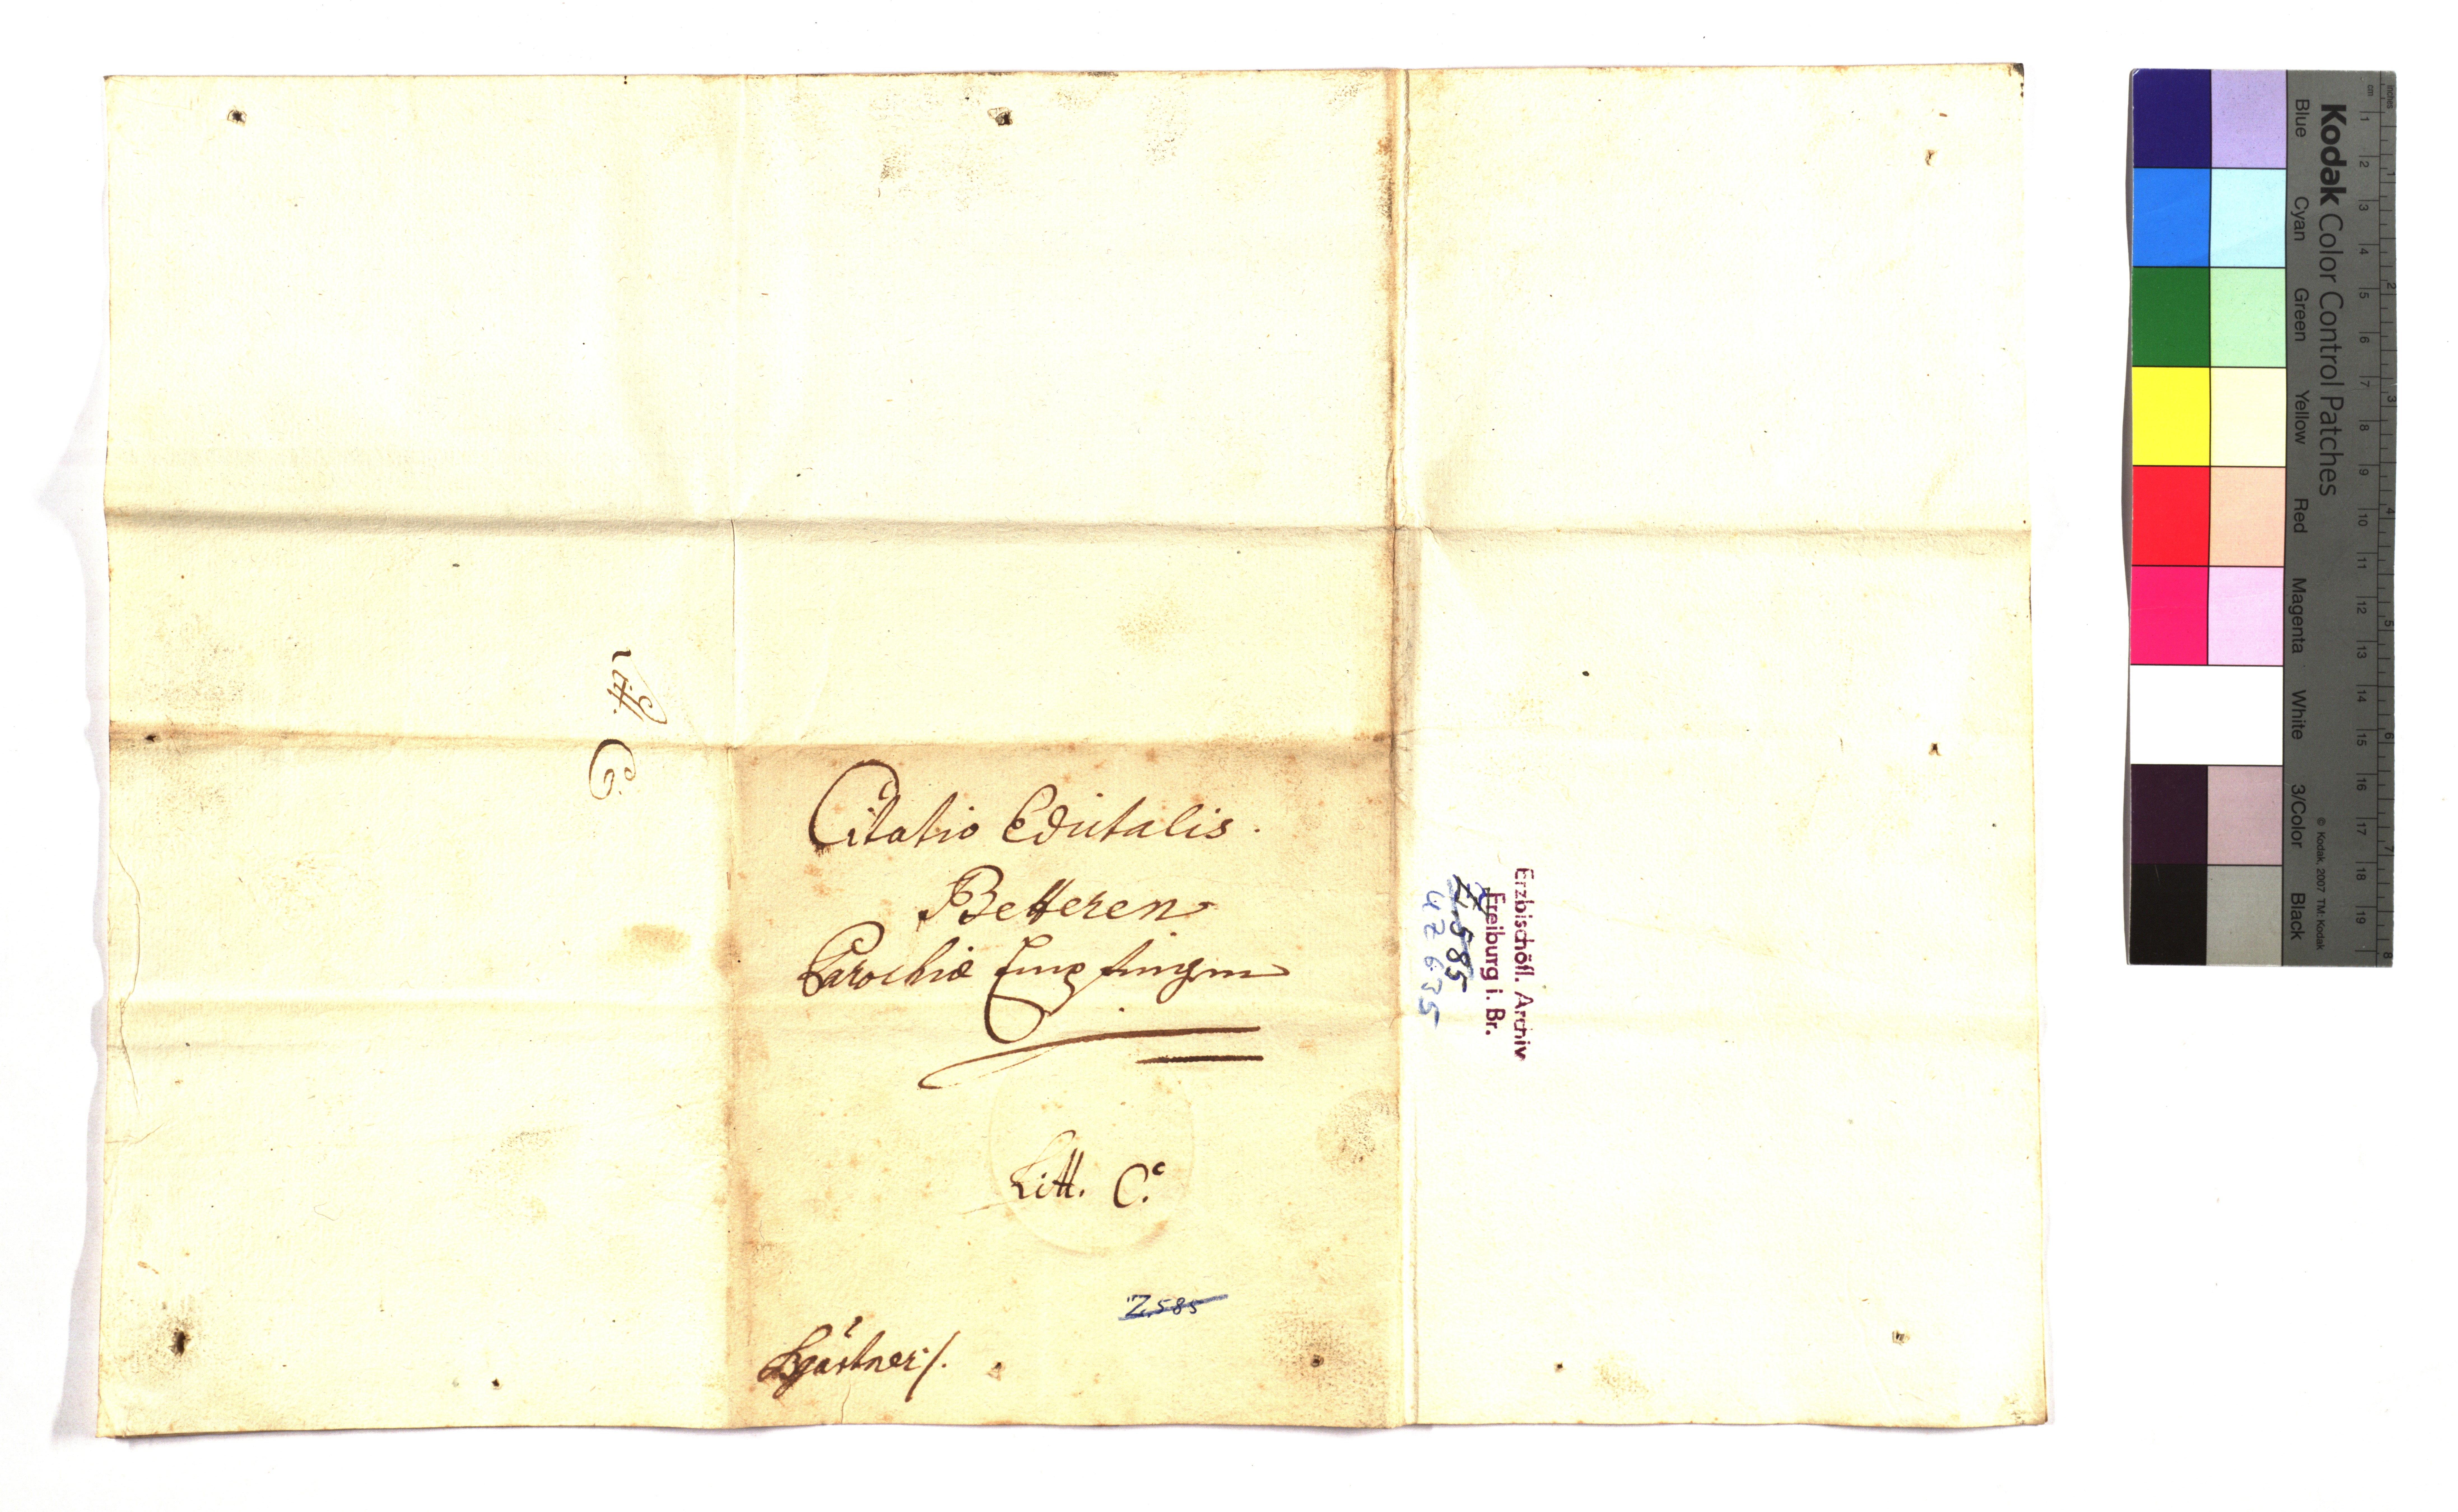 Litt. C.
Citatio Edictalis.
Betteren
Parochiæ Empfingen
Litt. C.
Z.585
Erzbischöfl. Archiv
Freiburg i. Br.
Z.585
UZ 635
Kodak Color Control Patches
Blue Cyan Green Yellow Red Magenta White 3/Color Black
© Kodak, 2007 TM: Kodak
inches 1 2 3 4 5 6 7 8
cm 1 2 3 4 5 6 7 8 9 10 11 12 13 14 15 16 17 18 19